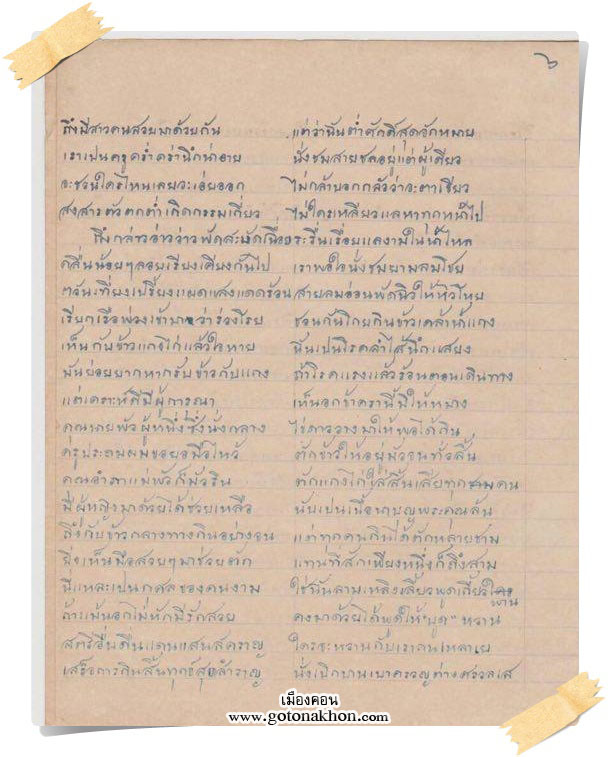 ๖
ถึงมีสาวคนสวยมาด้วยกัน แต่ว่านั้นต่ำศักดิ์สุดจักหมาย
เราเปนครูคร่ำคร่านึกน่าอาย นั่งชมสายชลอยู่แต่ผู้เดียว
จะชวนใครไหนเลยวะเอ่ยออก ไม่กล้าบอกกลัวว่าจะตาเขียว
สงสารตัวตกต่ำเกิดกรรมเกี่ยว ไม่ใครเหลียวแลหาทุกหน้าไป
ถึงกล่าวอ่าวว่าวพัด ระรื่นเรื่อยแลงามในน้ำไหล
คลื่นน้อยๆลอยเรียงเคียงกันไป เราพอใจนั่งชมยามลมโชย
ตวันเที่ยงเปรี้ยงแผดแสงแดดร้อน สายลมอ่อนพัดนิวให้หิวโหย
เรียกเรือพ่วงเข้ามาว่าร่วงโรย ชวนกันโกยกินข้าวเคล้าน้ำแกง
เห็นกับข้าวแกงไก่แล้วใจหาย ฉันเปนโรคลำไส้นึกแสยง
มันย่อยยากหากรับข้าวกับแกง ถ้าโรคแรงแล้วร้อนตอนเดินทาง
แต่เคราะห์ดีมีผู้การุณา เห็นอกข้าครานี้มิให้หมาง
คุณนายพัวผู้หนึ่งซึ่งนั่งกลาง ไข่ดาววางมาให้พอได้กิน
ครูประถมผมขอยอมือไหว้ ตักข้าวให้อยู่มัวจนทั่วสิ้น
คุณอำภาแม่พัวก็มัวริน ตักแกงไก่ใส่สิ้นเสียทุกชามคน
มีผู้หญิงมาด้วยได้ช่วยเหลือ นับเปนเนื้อนาบุญพระคุณล้น
ถึงกับข้าวกลางทางกินอย่างจน แต่ทุกคนกินได้ตักหลายชาม
ยิ่งเห็นมือสวยๆมาช่วยตัก แทนที่สักเพียงหนึ่งก็ถึงสาม
นี่แหละเปนกุศลของคนงาม ใช่นั้นลามเหลิงเลี้ยวพูดเกี้ยวใคร
ถ้าแม้นอกไม่หักมีรักสวย คงมาด้วยได้พูดให้ "บูด" หวาน
สตรีอื่นดื่นแดนแสนสคราญ ใครจะหวานกับเราถนเหลาเย
เสร็จการกินสิ้นทุกข์สุขสำราญ นั่งเบิกบานเบาครวญต่างสรวลเส
เมืองคอน
www.gotonakhon.com